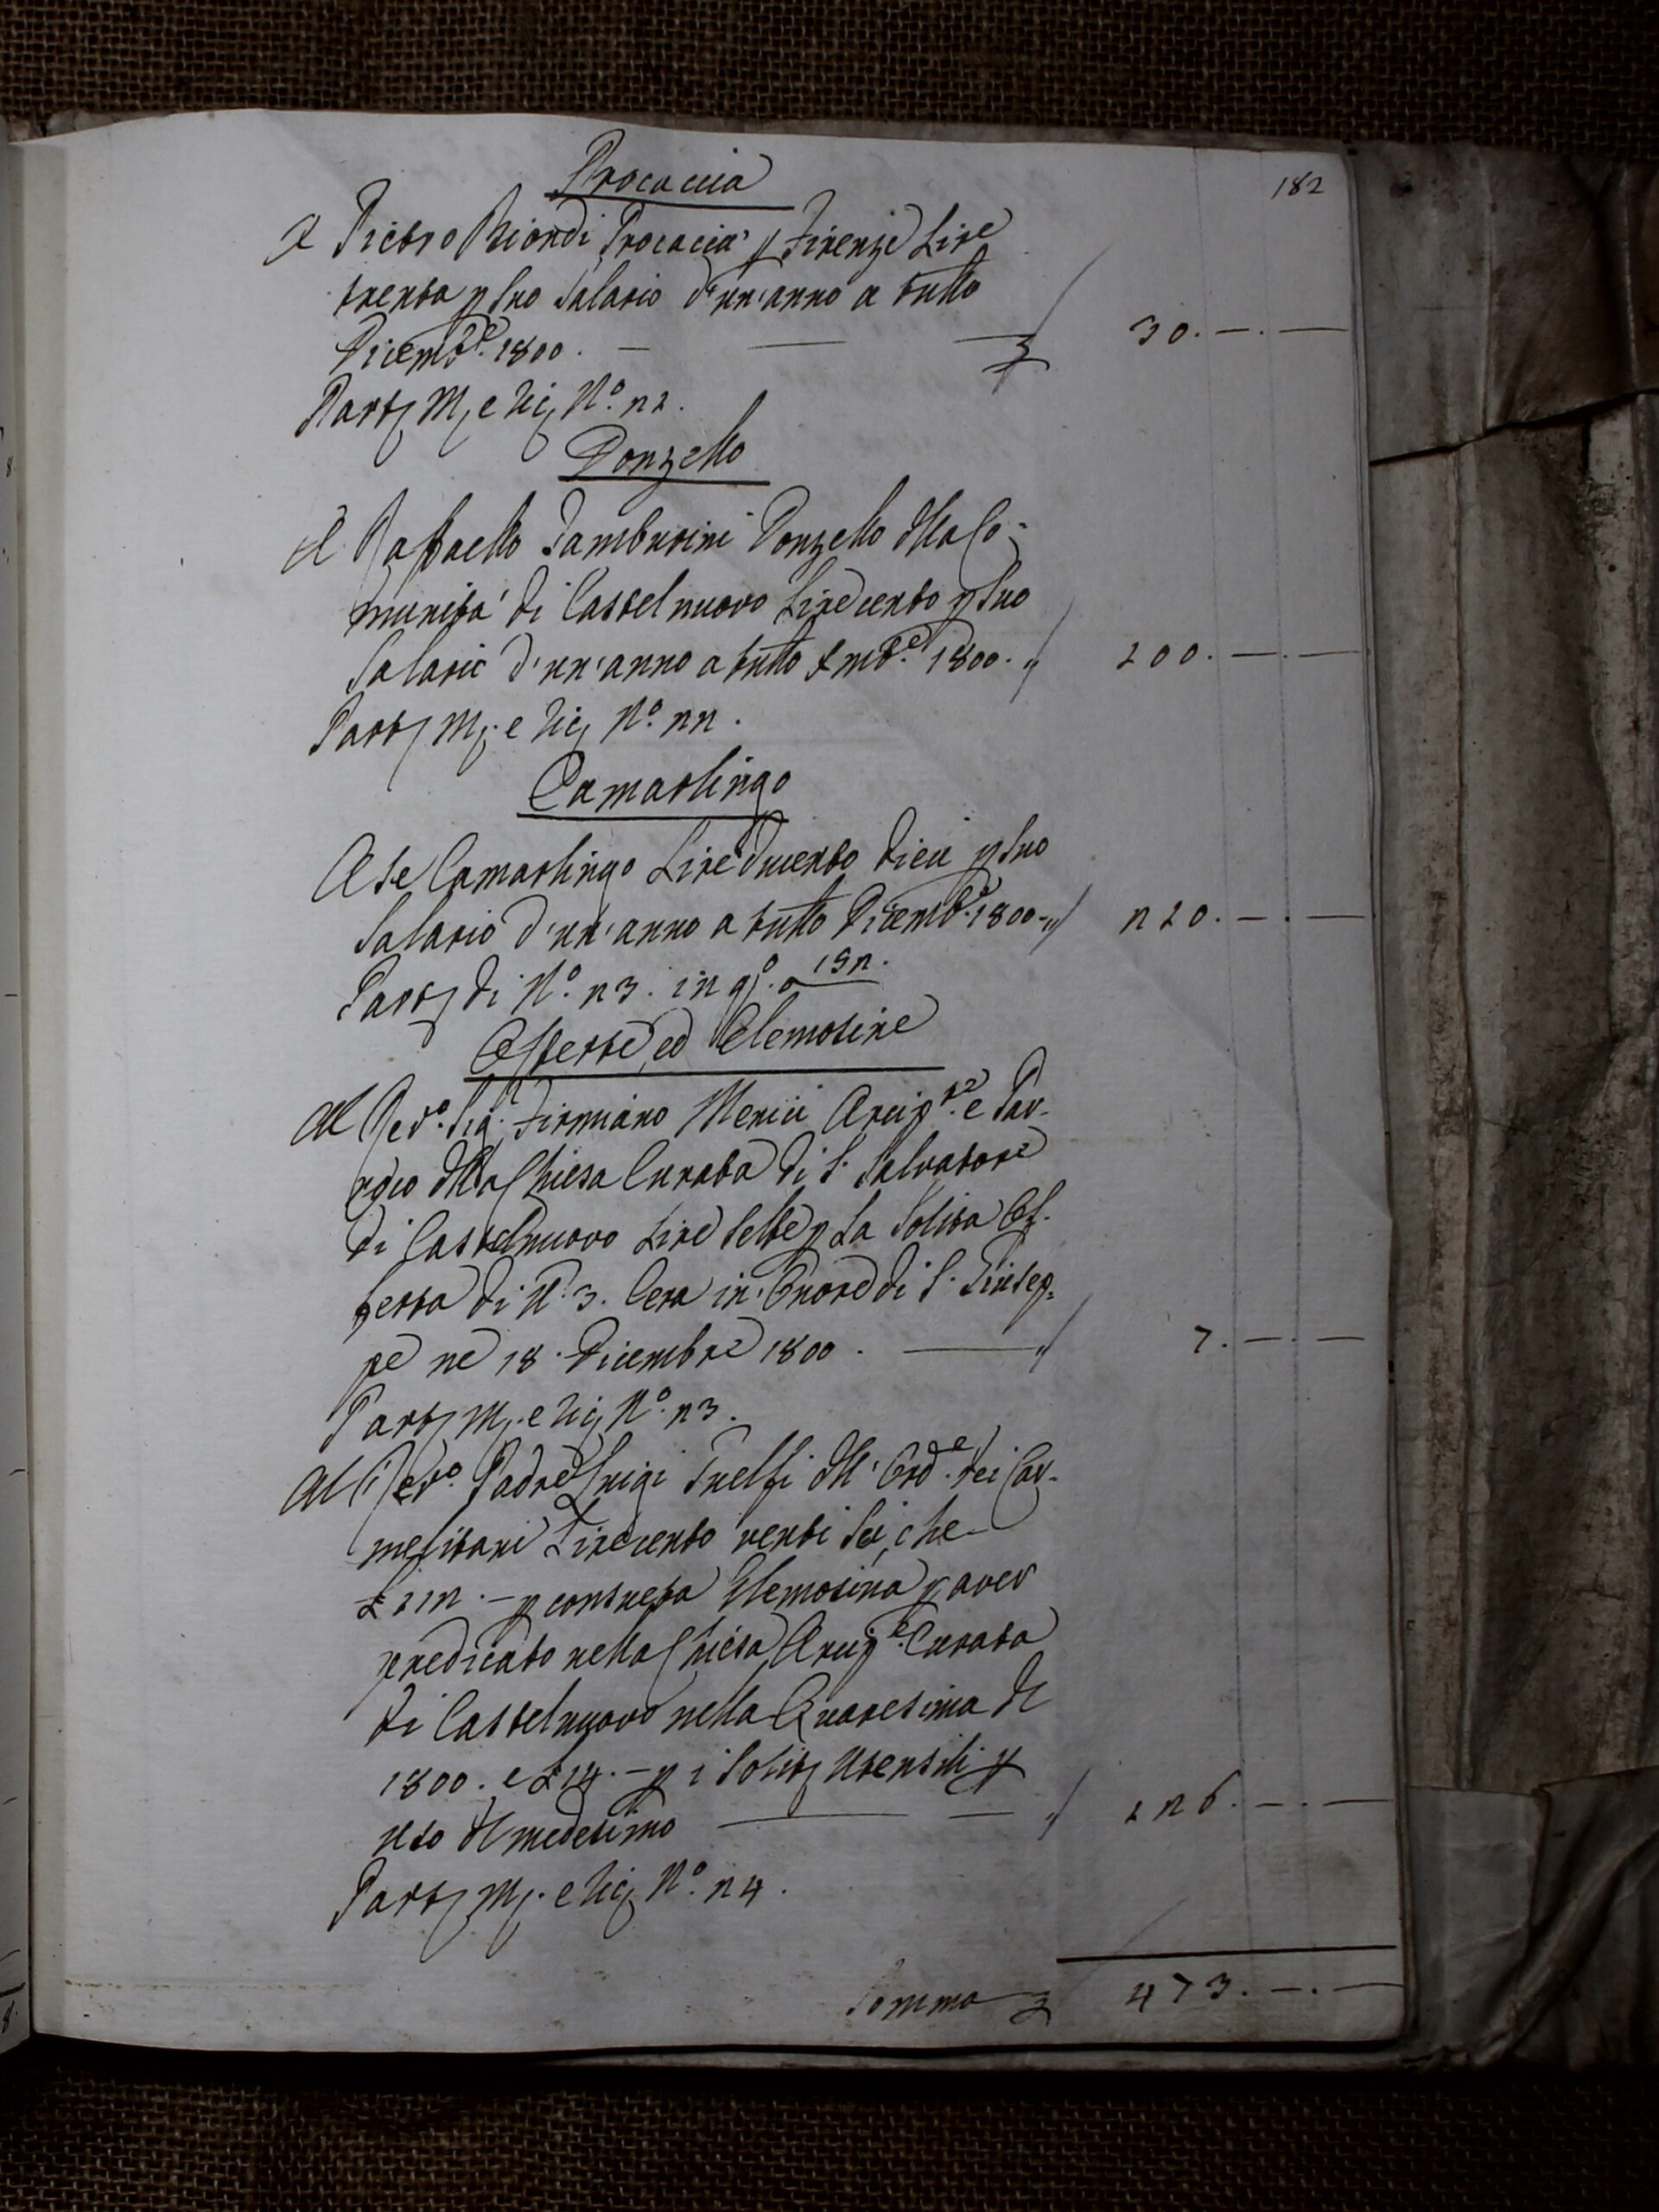 182
Procaccia
A Pietro Biondi Procaccia p Firenze Lire
trenta p suo Salario d'un'anno a tutto
Dicembre. 1800. — — £ 30. — . —
Part M. e Ric N.° 12.
Donzello
A Raffaello Tamburini Donzello della Co=
munità di Castelnuovo Lire cento p suo
Salario d'un'anno a tutto Xmbre. 1800. " 100. — . —
Part M. e Ric N.° 11.
Camarlingo
A se Camarlingo Lire Ducento dieci p suo
Salario d'un'anno a tutto Dicembre. 1800 - " 210. — . —
Part di N.° 13. in q.° a 151.
Offerte, ed Elemosine
Al Rev.° Sig. Firmiano Menici Arcip.te e Par-
roco della Chiesa Curata di S. Salvatore
di Castelnuovo Lire sette p la Solita Of-
ferta di N. 3. Cera in Onore di S. Giusep-
pe ne 18. Dicembre 1800. — " 7. — . —
Part M. e Ric N.° 13.
Al Rev.° Padre Luigi Guelfi dell' Ord.e dei Car-
melitani Lire cento venti sei, che
£ 112. — p consueta Elemosina p aver
predicato nella Chiesa Arcip.e Curata
di Castelnuovo nella Quaresima del
1800. e £ 14. — p i Soliti Utensili p
uso del medesimo — — " 126. — . —
Part M. e Ric N.° 14.
Somma £ 473. — . —